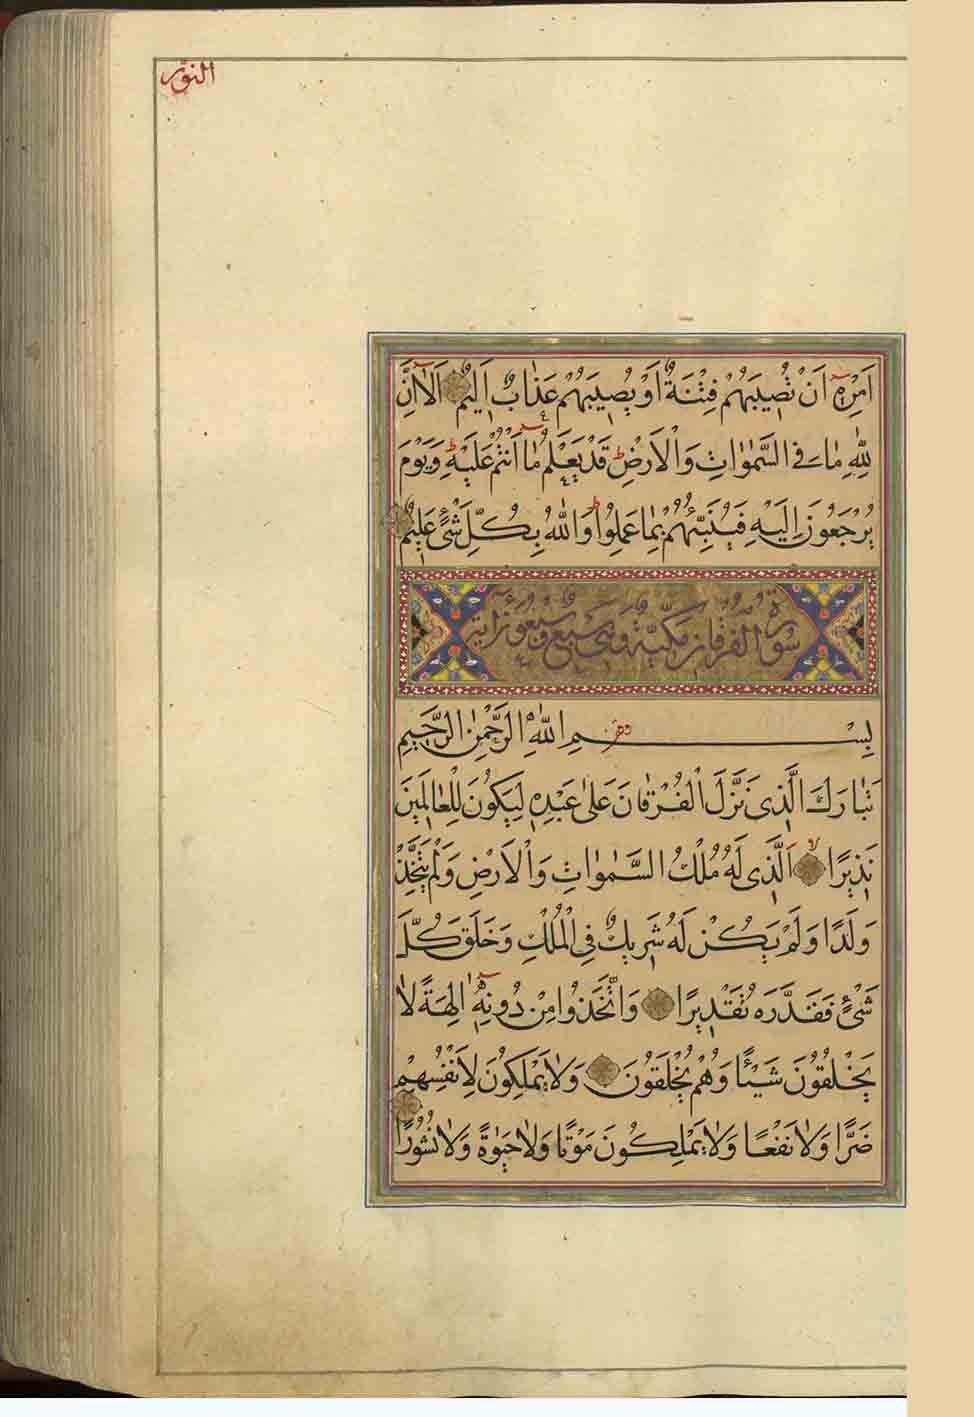 النور
اَمْرِهٖٓ اَنْ تُصِيبَهُمْ فِتْنَةٌ اَوْ يُصِيبَهُمْ عَذَابٌ اَلِيمٌ اَلَآ اِنَّ
لِلّٰهِ مَا فِى السَّمٰوَاتِ وَالْاَرْضِ ط قَدْ يَعْلَمُ مَآ اَنْتُمْ عَلَيْهِ ط وَيَوْمَ
يُرْجَعُونَ اِلَيْهِ فَيُنَبِّئُهُمْ بِمَا عَمِلُوا ط وَاللّٰهُ بِكُلِّ شَىْءٍ عَلِيمٌ
سُورَةُ الْفُرْقَانِ مَكِّيَّةٌ وَهِىَ سَبْعٌ وَسَبْعُونَ اٰيَةً
بِسْمِ اللّٰهِ الرَّحْمٰنِ الرَّحِيمِ
تَبَارَكَ الَّذِى نَزَّلَ الْفُرْقَانَ عَلٰى عَبْدِهٖ لِيَكُونَ لِلْعَالَمِينَ
نَذِيرًا لا اَلَّذِى لَهُ مُلْكُ السَّمٰوَاتِ وَالْاَرْضِ وَلَمْ يَتَّخِذْ
وَلَدًا وَلَمْ يَكُنْ لَهُ شَرِيكٌ فِى الْمُلْكِ وَخَلَقَ كُلَّ
شَىْءٍ فَقَدَّرَهُ تَقْدِيرًا وَاتَّخَذُوا مِنْ دُونِهٖٓ اٰلِهَةً لَا
يَخْلُقُونَ شَيْئًا وَهُمْ يُخْلَقُونَ وَلَا يَمْلِكُونَ لِاَنْفُسِهِمْ
ضَرًّا وَلَا نَفْعًا وَلَا يَمْلِكُونَ مَوْتًا وَلَا حَيٰوةً وَلَا نُشُورًا